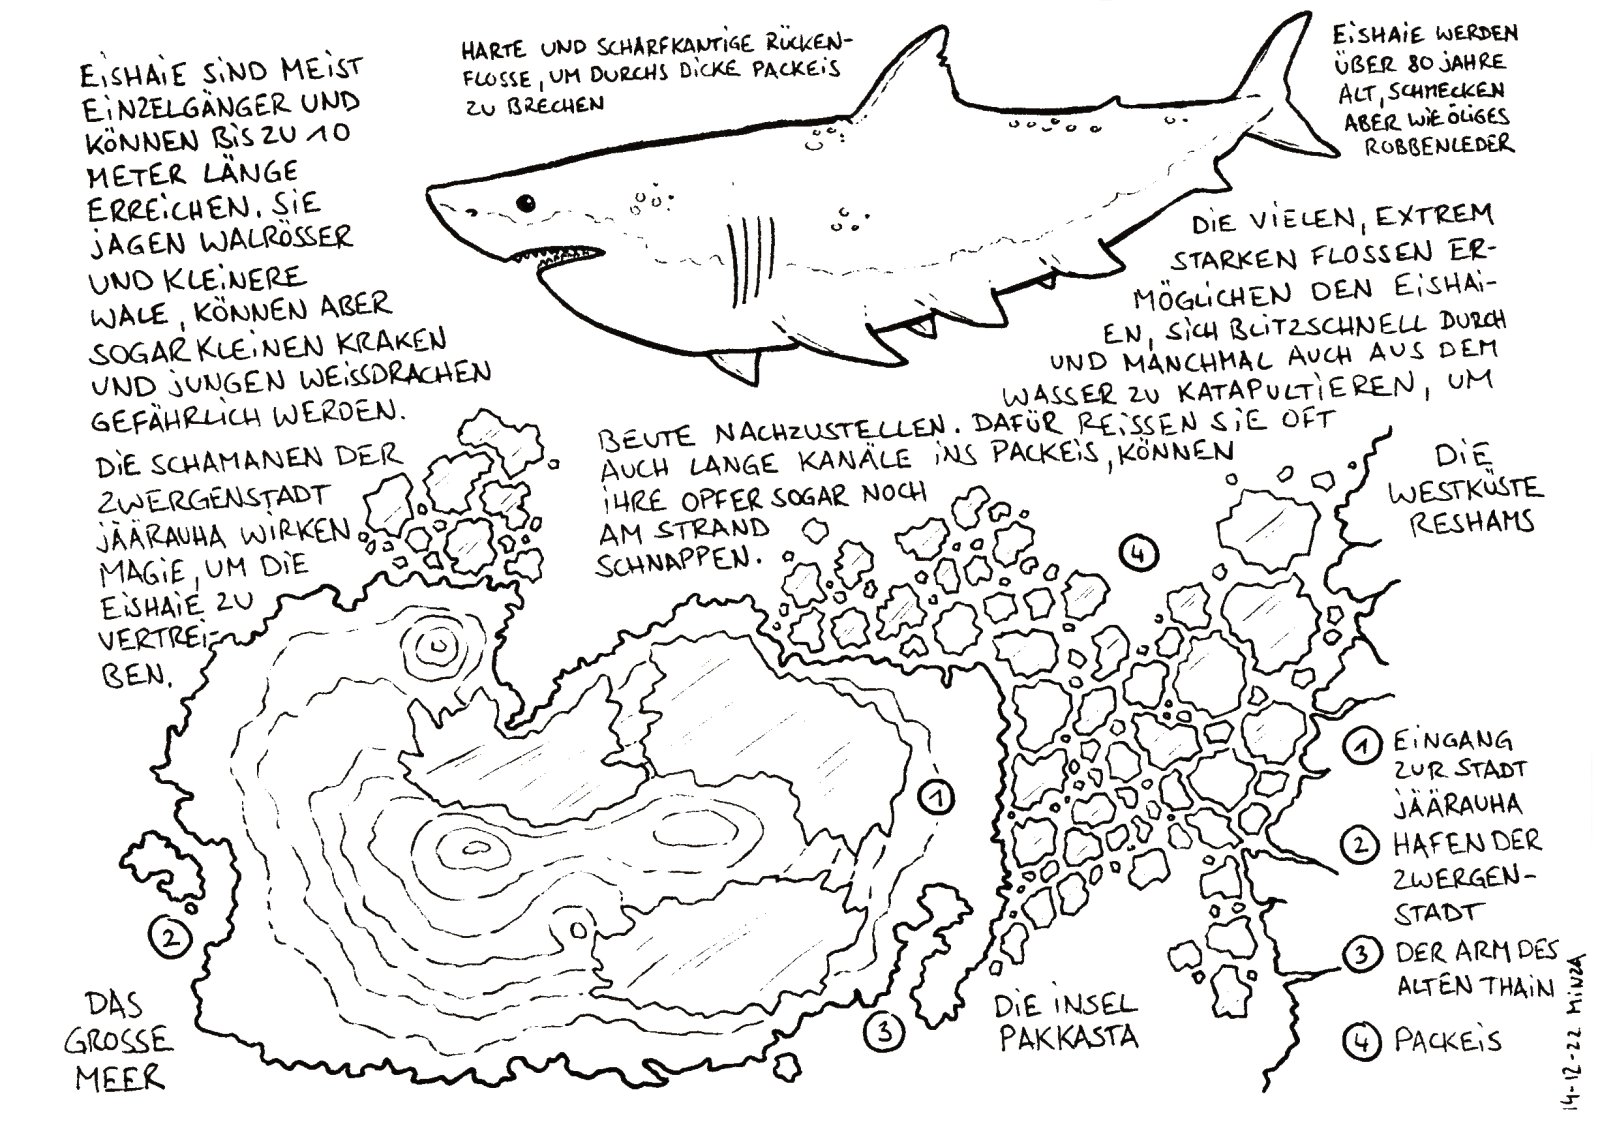 EiSHAiE SiND MEiST
EiNZELGÄNGER UND
KÖNNEN BiS ZU 10
METER LÄNGE
ERREiCHEN. SiE
JAGEN WALRÖSSER
UND KLEiNERE
WALE, KÖNNEN ABER
SOGAR KLEiNEN KRAKEN
UND JUNGEN WEiSSDRACHEN
GEFÄHRLiCH WERDEN.
DiE SCHAMANEN DER
ZWERGENSTADT
JÄÄRAUHA WiRKEN
MAGiE, UM DiE
EiSHAiE ZU
VERTREi-
BEN.
HARTE UND SCHARFKANTiGE RÜCKEN-
FLOSSE, UM DURCHS DiCKE PACKEiS
ZU BRECHEN
EiSHAiE WERDEN
ÜBER 80 JAHRE
ALT, SCHMECKEN
ABER WiE ÖLiGES
ROBBENLEDER
DiE ViELEN, EXTREM
STARKEN FLOSSEN ER-
MÖGLiCHEN DEN EiSHAi-
EN, SiCH BLiTZSCHNELL DURCH
UND MANCHMAL AUCH AUS DEM
WASSER ZU KATAPULTiEREN, UM
BEUTE NACHZUSTELLEN. DAFÜR REiSSEN SiE OFT
AUCH LANGE KANÄLE iNS PACKEiS, KÖNNEN
iHRE OPFER SOGAR NOCH
AM STRAND
SCHNAPPEN.
4
DiE
WESTKÜSTE
RESHAMS
1
2
3
DAS
GROSSE
MEER
DiE iNSEL
PAKKASTA
1 EiNGANG
ZUR STADT
JÄÄRAUHA
2 HAFEN DER
ZWERGEN-
STADT
3 DER ARM DES
ALTEN THAiN
4 PACKEiS
14-12-22 MiNZA